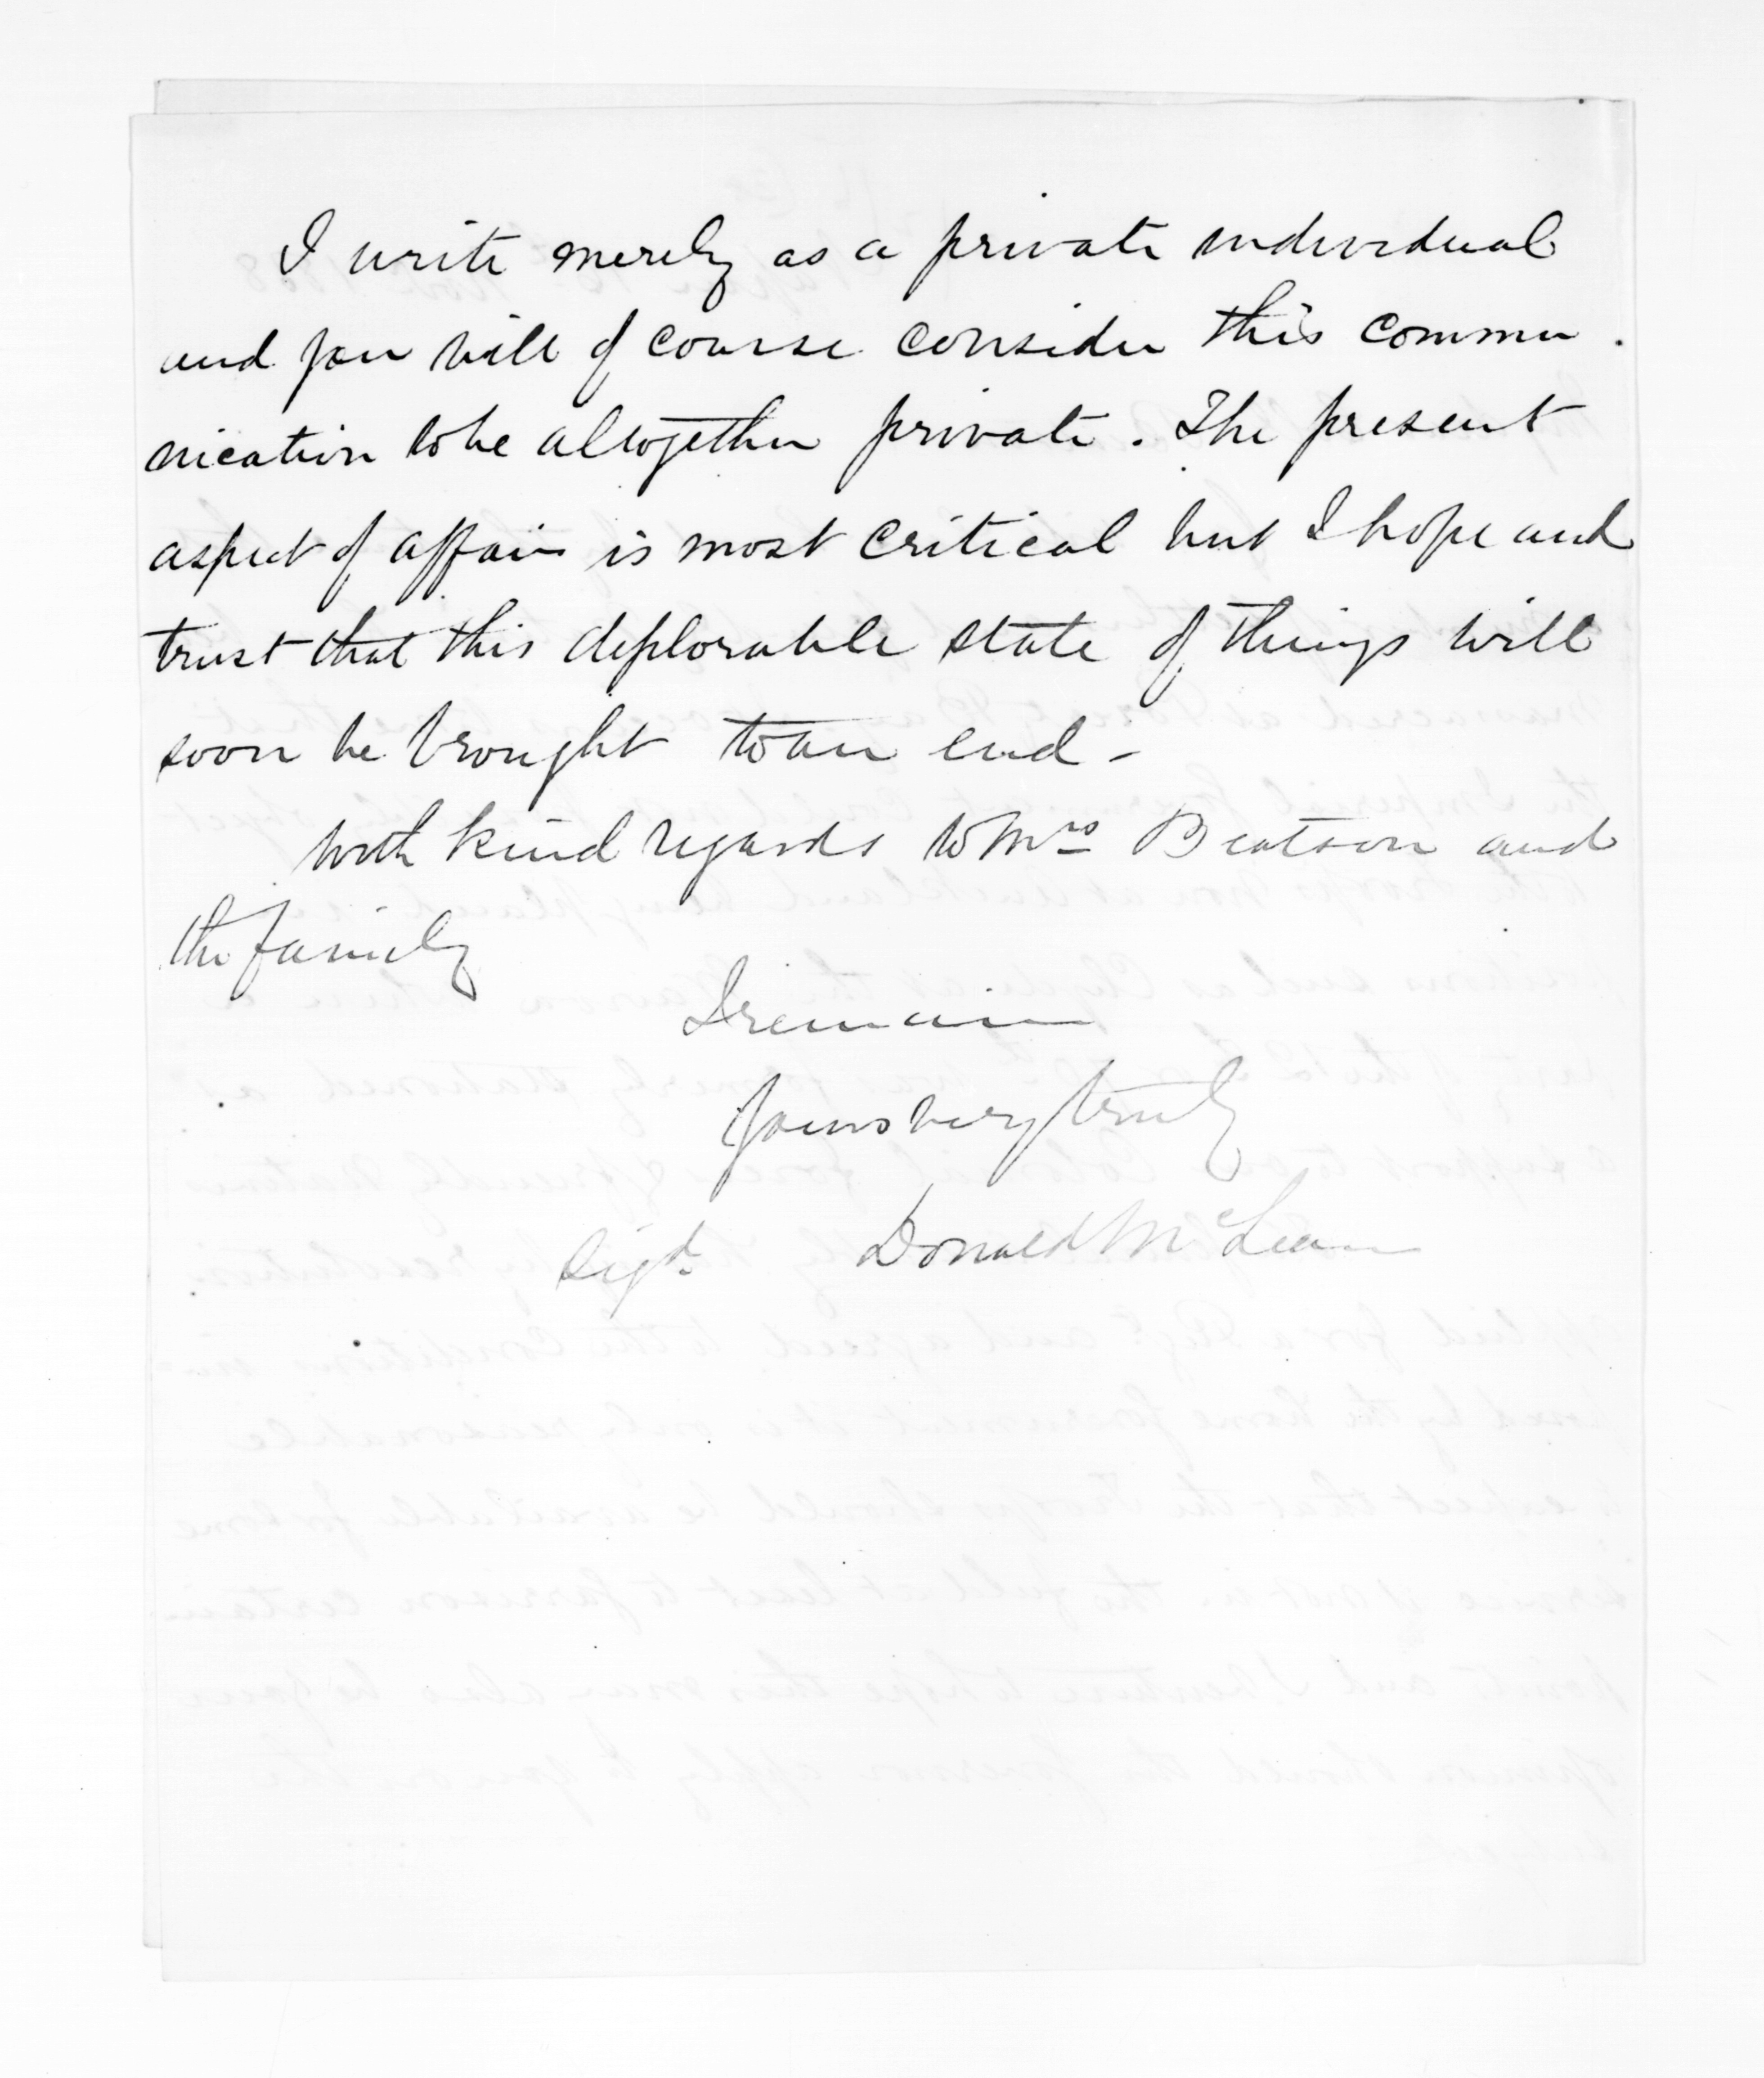 I write merely as a private individual
and you will of course consider this commu
nication to be altogether private. The present
aspect of affairs is most critical but I hope and
trust that this deplorable state of things will
soon be brought to an end -
With kind regards to Mrs Beatson and
the family
I remain
Yours very truly
Sigd. Donald McLean